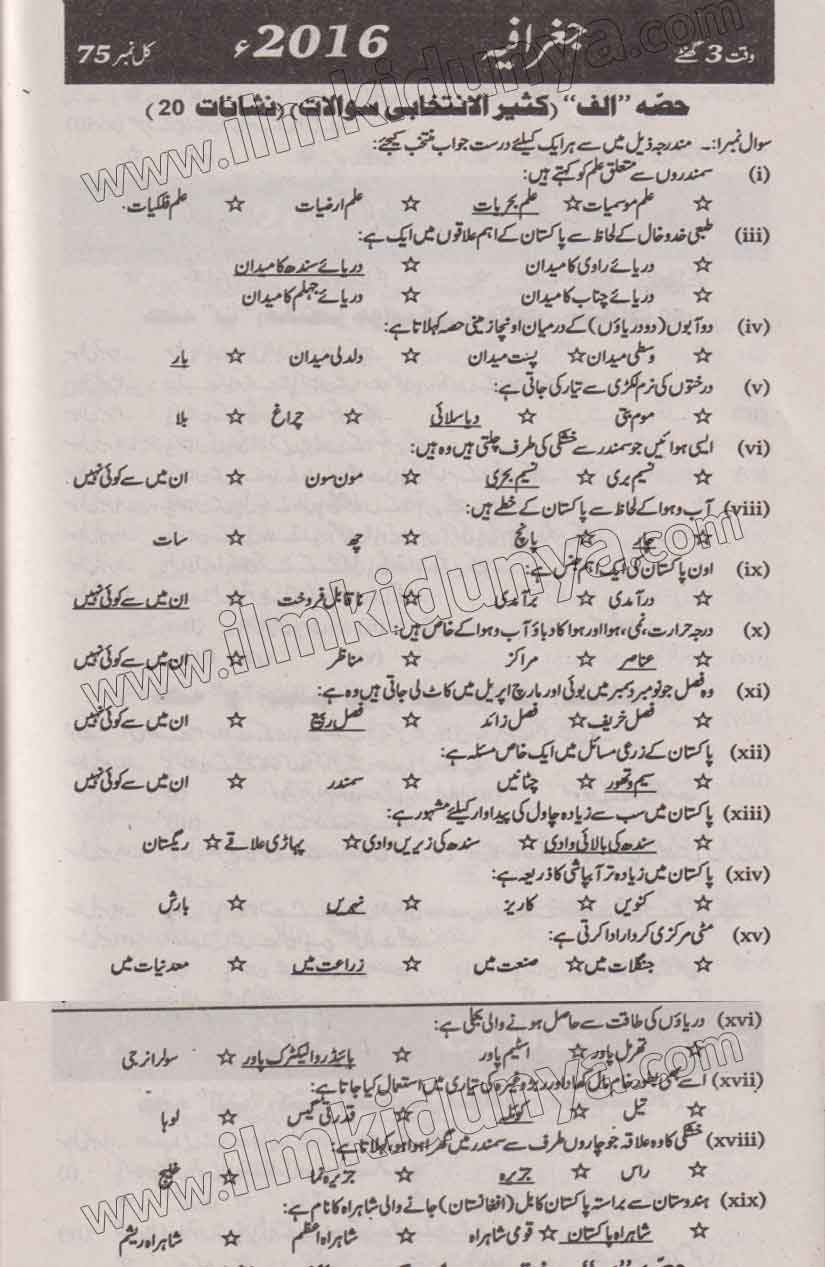 وقت 3 گھنٹے جغرافیہ 2016ء کل نمبر 75
حصّہ "الف" (کثیر الانتخابی سوالات) (نشانات 20)
سوال نمبر ا:۔ مندرجہ ذیل میں سے ہر ایک کیلئے درست جواب منتخب کیجئے:
(i) سمندروں سے متعلق علم کو کہتے ہیں:
☆ علم موسمیات ☆ علم بحریات ☆ علم ارضیات ☆ علم فلکیات.
(iii) طبعی خدوخال کے لحاظ سے پاکستان کے اہم علاقوں میں ایک ہے:
☆ دریائے راوی کا میدان ☆ دریائے سندھ کا میدان
☆ دریائے چناب کا میدان ☆ دریائے جہلم کا میدان
(iv) دوآبوں (دو دریاؤں) کے درمیان اونچا زمینی حصہ کہلاتا ہے:
☆ وسطی میدان ☆ پست میدان ☆ ولدلی میدان ☆ بار
(v) درختوں کی نرم لکڑی سے تیار کی جاتی ہے:
☆ موم بتی ☆ دیا سلائی ☆ چراغ ☆ بلا
(vi) ایسی ہوائیں جو سمندر سے خشکی کی طرف چلتی ہیں وہ ہیں:
☆ نسیم بری ☆ نسیم بحری ☆ مون سون ☆ ان میں سے کوئی نہیں.
(viii) آب و ہوا کے لحاظ سے پاکستان کے خطے ہیں:
☆ چار ☆ پانچ ☆ چھ ☆ سات
(ix) اون پاکستان کی ایک اہم جنس ہے:
☆ درآمدی ☆ برآمدی ☆ ناقابل فروخت ☆ ان میں سے کوئی نہیں
(x) درجہ حرارت، نمی، ہوا اور ہوا کا دباؤ آب و ہوا کے خاص ہیں:
☆ عناصر ☆ مراکز ☆ مناظر ☆ ان میں سے کوئی نہیں
(xi) وہ فصل جو نومبر دسمبر میں بوئی اور مارچ اپریل میں کاٹ لی جاتی ہیں وہ ہے:
☆ فصل خریف ☆ فصل زائد ☆ فصل ربیع ☆ ان میں سے کوئی نہیں
(xii) پاکستان کے زرعی مسائل میں ایک خاص مسئلہ ہے:
☆ سیم و تھور ☆ چٹانیں ☆ سمندر ☆ ان میں سے کوئی نہیں
(xiii) پاکستان میں سب سے زیادہ چاول کی پیداوار کیلئے مشہور ہے:
☆ سندھ کی بالائی وادی ☆ سندھ کی زیریں وادی ☆ پہاڑی علاقے ☆ ریگستان
(xiv) پاکستان میں زیادہ تر آبپاشی کا ذریعہ ہے:
☆ کنویں ☆ کاریز ☆ نہریں ☆ بارش
(xv) مٹی مرکزی کردار ادا کرتی ہے:
☆ جنگلات میں ☆ صنعت میں ☆ زراعت میں ☆ معدنیات میں
(xvi) دریاؤں کی طاقت سے حاصل ہونے والی بجلی ہے:
☆ تھرمل پاور ☆ اسٹیم پاور ☆ ہائیڈرو الیکٹرک پاور ☆ سولر انرجی
(xvii) اسے بھی بطور خام مال کھاد اور ربڑ وغیرہ کی تیاری میں استعمال کیا جاتا ہے:
☆ تیل ☆ کوئلہ ☆ قدرتی گیس ☆ لوہا
(xviii) خشکی کا وہ علاقہ جو چاروں طرف سے سمندر میں گھرا ہوا ہو، کہلاتا ہے:
☆ راس ☆ جزیرہ ☆ جزیرہ نما ☆ خلیج
(xix) ہندوستان سے براستہ پاکستان کابل (افغانستان) جانے والی شاہراہ کا نام ہے:
☆ شاہراہ پاکستان ☆ قومی شاہراہ ☆ شاہراہ اعظم ☆ شاہراہ ریشم
www.ilmkidunya.com
www.ilmkidunya.com
www.ilmkidunya.com
www.ilmkidunya.com